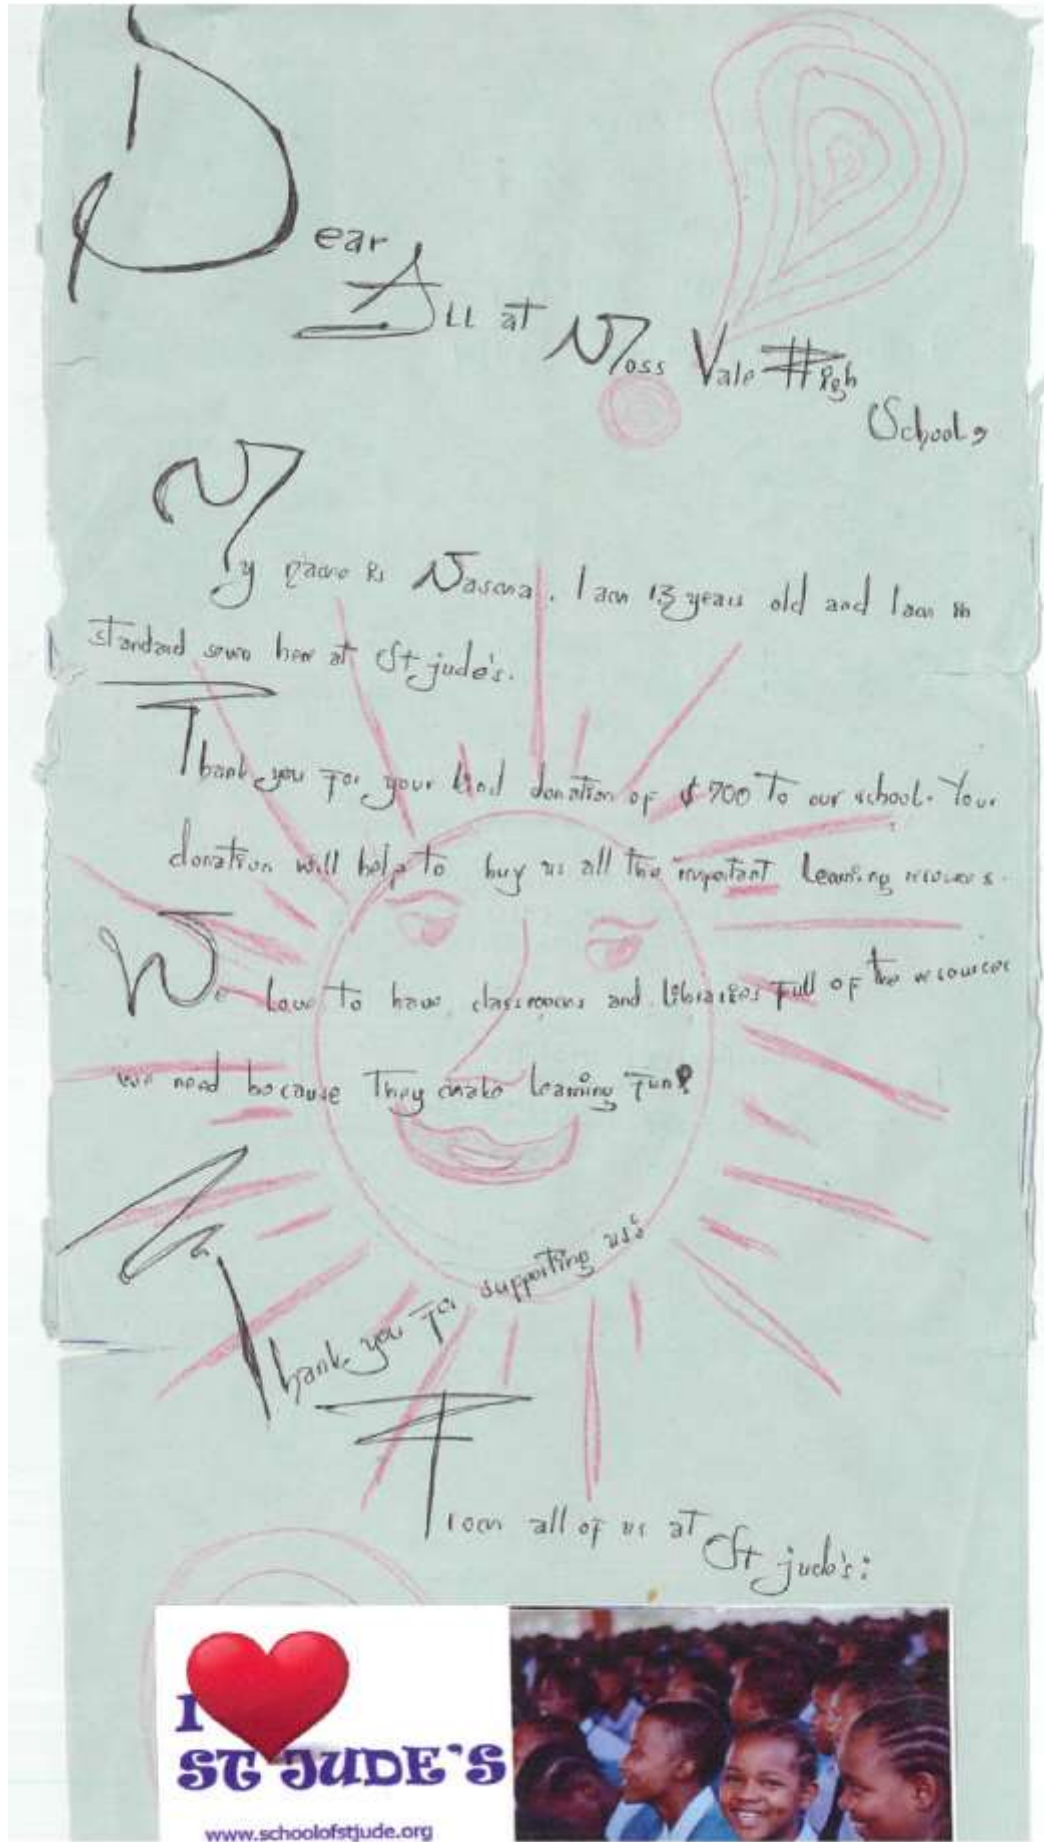 Dear
All at Moss Vale High
School,
My name is Nasma. I am 13 years old and I am in
standard seven here at St jude's.
Thank you for your kind donation of $ 700 to our school. Your
donation will help to buy us all the important learning resources.
We love to have classrooms and libraries full of the resources
we need because they make learning fun!
Thank you for supporting us:
From all of us at St jude's:
I
ST JUDE'S
www.schoolofstjude.org